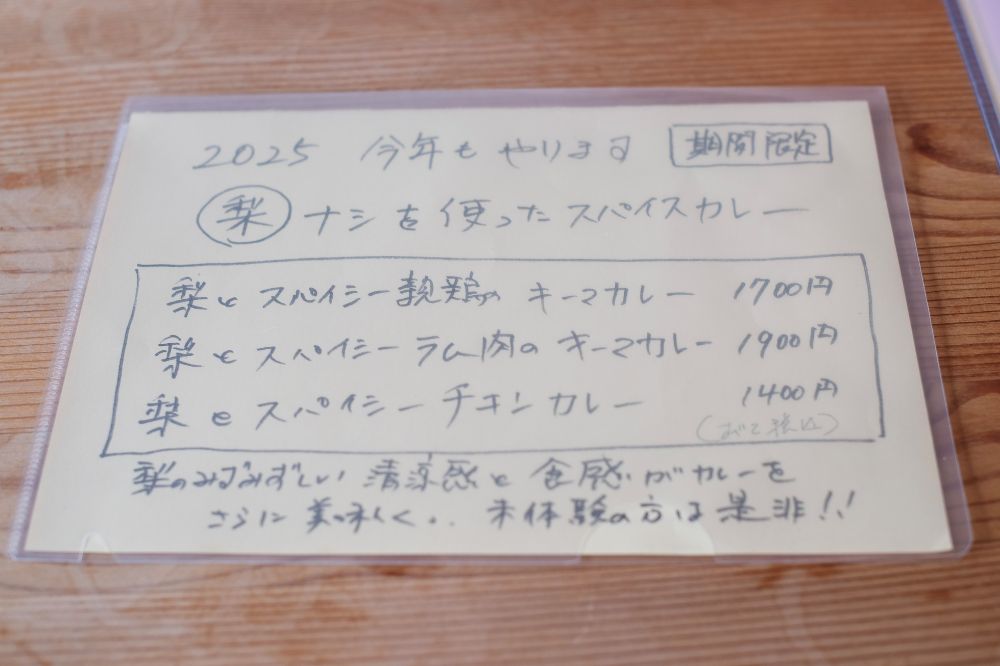 2025 今年も やります 期間限定
梨 ナシを使ったスパイスカレー
梨と スパイシー親鶏の キーマカレー 1700円
梨と スパイシー ラム肉の キーマカレー 1900円
梨と スパイシー チキンカレー 1400円
(すべて税込)
梨のみずみずしい 清涼感と 食感がカレーを
さらに 美味しく.. 未体験の方は是非!!